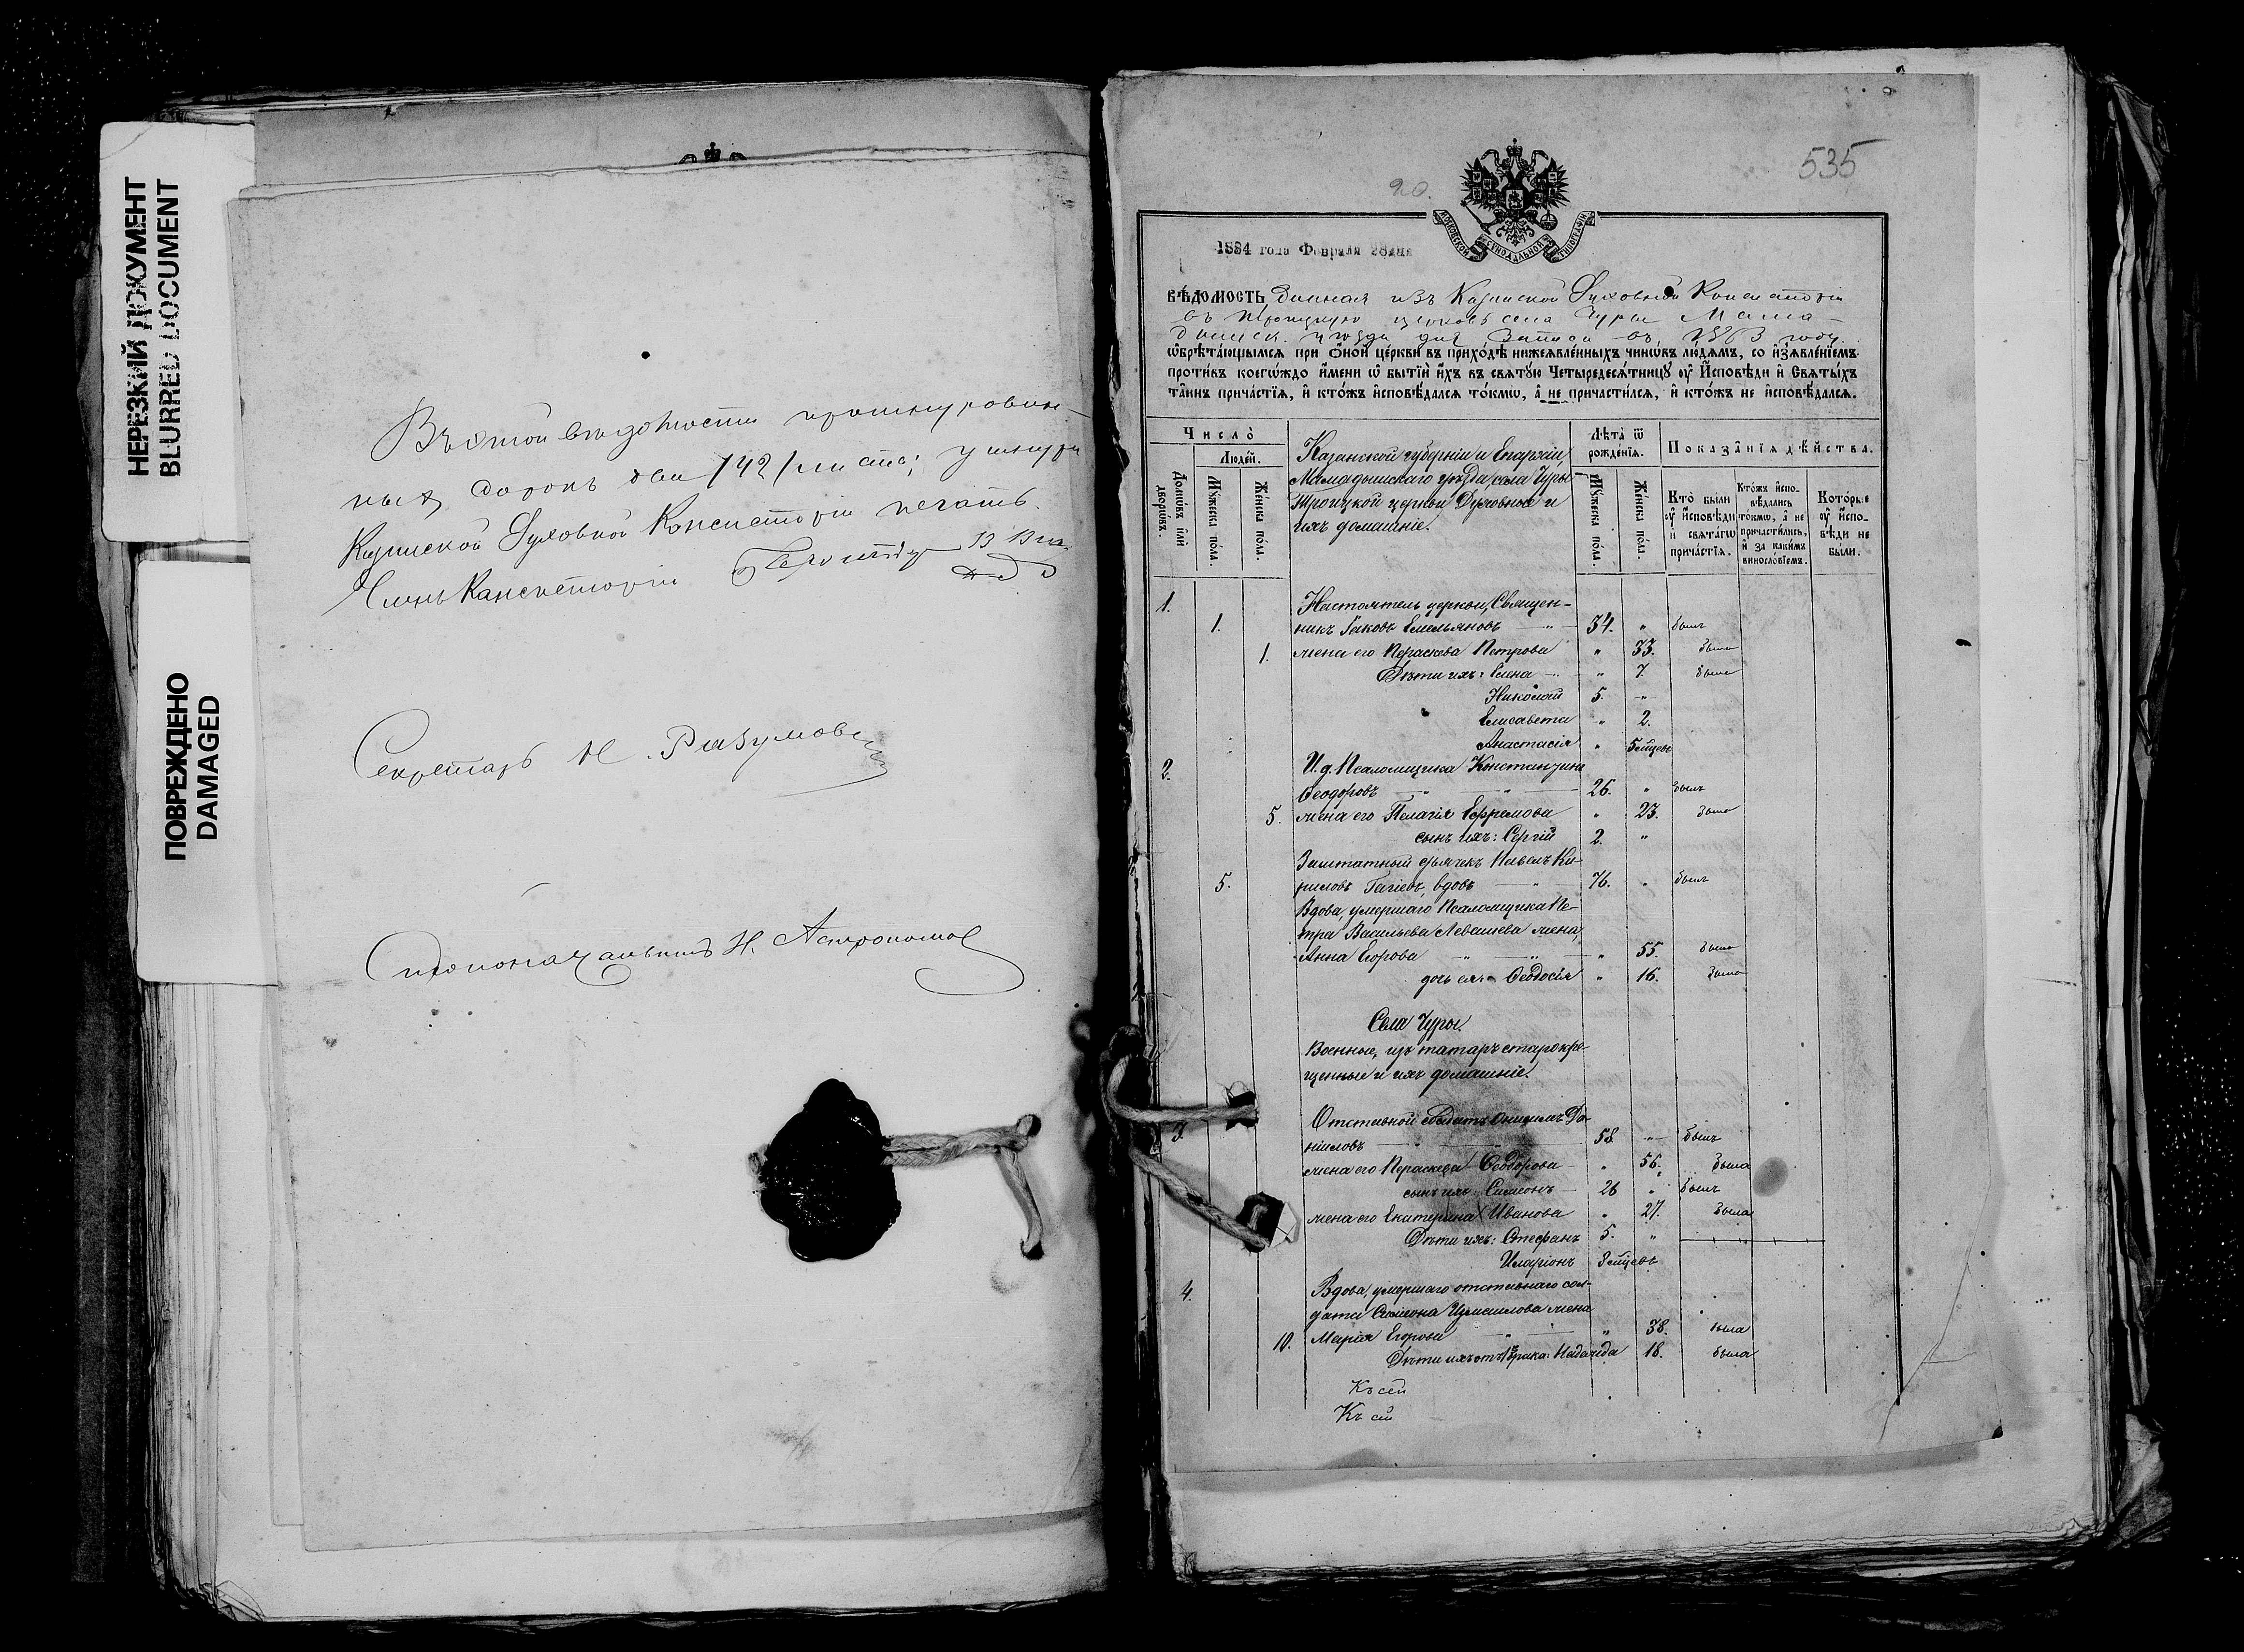 НЕРЕЗКИЙ ДОКУМЕНТ
BLURRED DOCUMENT
ПОВРЕЖДЕНО
DAMAGED
Въ этой вѣдомости прошнурован-
ныхъ сорокъ два /42/ листа; у шнура
Казанской Духовной Консисторіи печать.
Членъ Консисторіи
Секретарь Н. Разумовскій
Столоначальникъ Н. Астрономов
535
20.
МОСКОВСКОЙ СѴНОДАЛЬНОЙ ТИПОГРАФІИ
1884 года Февраля 28 дня
ВѢДОМОСТЬ данная изъ Казанской Духовной Консисторіи
въ Троицкую церковь села Чуры Мама-
дышск. уѣзда для записи въ
ѡ҆брѣта́ющымсѧ при ѻ҆́ной це́ркви въ прихо́дѣ нижеѧвле́нныхъ чинѡ́въ лю́демъ, со и҆з̾ѧвле́нїемъ
проти́въ коегѡ́ждо и҆́мени ѡ҆ бытїѝ и҆́хъ въ свѧту́ю Четыредесѧ́тницу ᲂу҆ И҆сповѣ́ди и҆ Свѧты́хъ
та̑инъ прича́стїѧ, и҆ кто́жъ и҆сповѣ́далсѧ то́кмѡ, а҆ не причасти́лсѧ, и҆ кто́жъ не и҆сповѣ́далсѧ.
Число̀
Люде́й.
Домѡ́въ и҆лѝ дворѡ́въ.
Мꙋ́жеска по́ла.
Же́нска по́ла.
Казанской губерніи и Епархіи
Мамадышскаго уѣзда села Чуры
Троицкой церкви Духовные и
ихъ домашніе.
Лѣ́та ѿ рожде́нїѧ.
Мꙋ́жеска по́ла.
Же́нска по́ла.
Показа̑нїѧ дѣ́йства.
Кто̀ бы́ли ᲂу҆ И҆сповѣ́ди и҆ свѧта́гѡ прича́стїѧ.
Кто́жъ и҆спо-вѣ́дались то́кмѡ, а҆ не причасти́лись, и҆ за каки́мъ виносло́вїемъ.
Кото́рые ᲂу҆ И҆спо-вѣ́ди не бы́ли.
1. Настоятель церкви, Священ-
1. никъ Іаковъ Емельяновъ 34. " былъ
1. жена его Параскева Петрова " 33. была
Дѣти ихъ: Елена " 7. была
Николай 5. "
Елисавета " 2.
Анастасія " 5 мѣцевъ
2. И. д. Псаломщика Константинъ
Ѳеодоровъ 26. " былъ
5. жена его Пелагія Ефремова " 23. была
сынъ ихъ: Сергій 2. "
Заштатный дьячекъ Павелъ Ки-
5. риловъ вдовъ 76. " былъ
Вдова, умершаго Псаломщика Пе-
тра Васильева Левашева жена,
Анна Егорова " 55. была
дочь ея Ѳеодосія " 16. была
Села Чуры.
Военные, изъ татаръ старокре-
щенные и ихъ домашніе.
3. Отставной солдатъ Онисимъ Да-
ниловъ 58 " былъ
жена его Параскева Ѳеодорова " 56. была
сынъ ихъ: Симеонъ 26 " былъ
жена его Екатерина Иванова " 27. была
Дѣти ихъ: Стефанъ 5. "
Иларіонъ 3 мѣцевъ
4. Вдова, умершаго отставнаго сол-
дата Симеона Измаилова жена
10. Марія Егорова " 38. была
Дѣти ихъ отъ 1 брака: Надежда 18. была
Къ сей
Къ сей